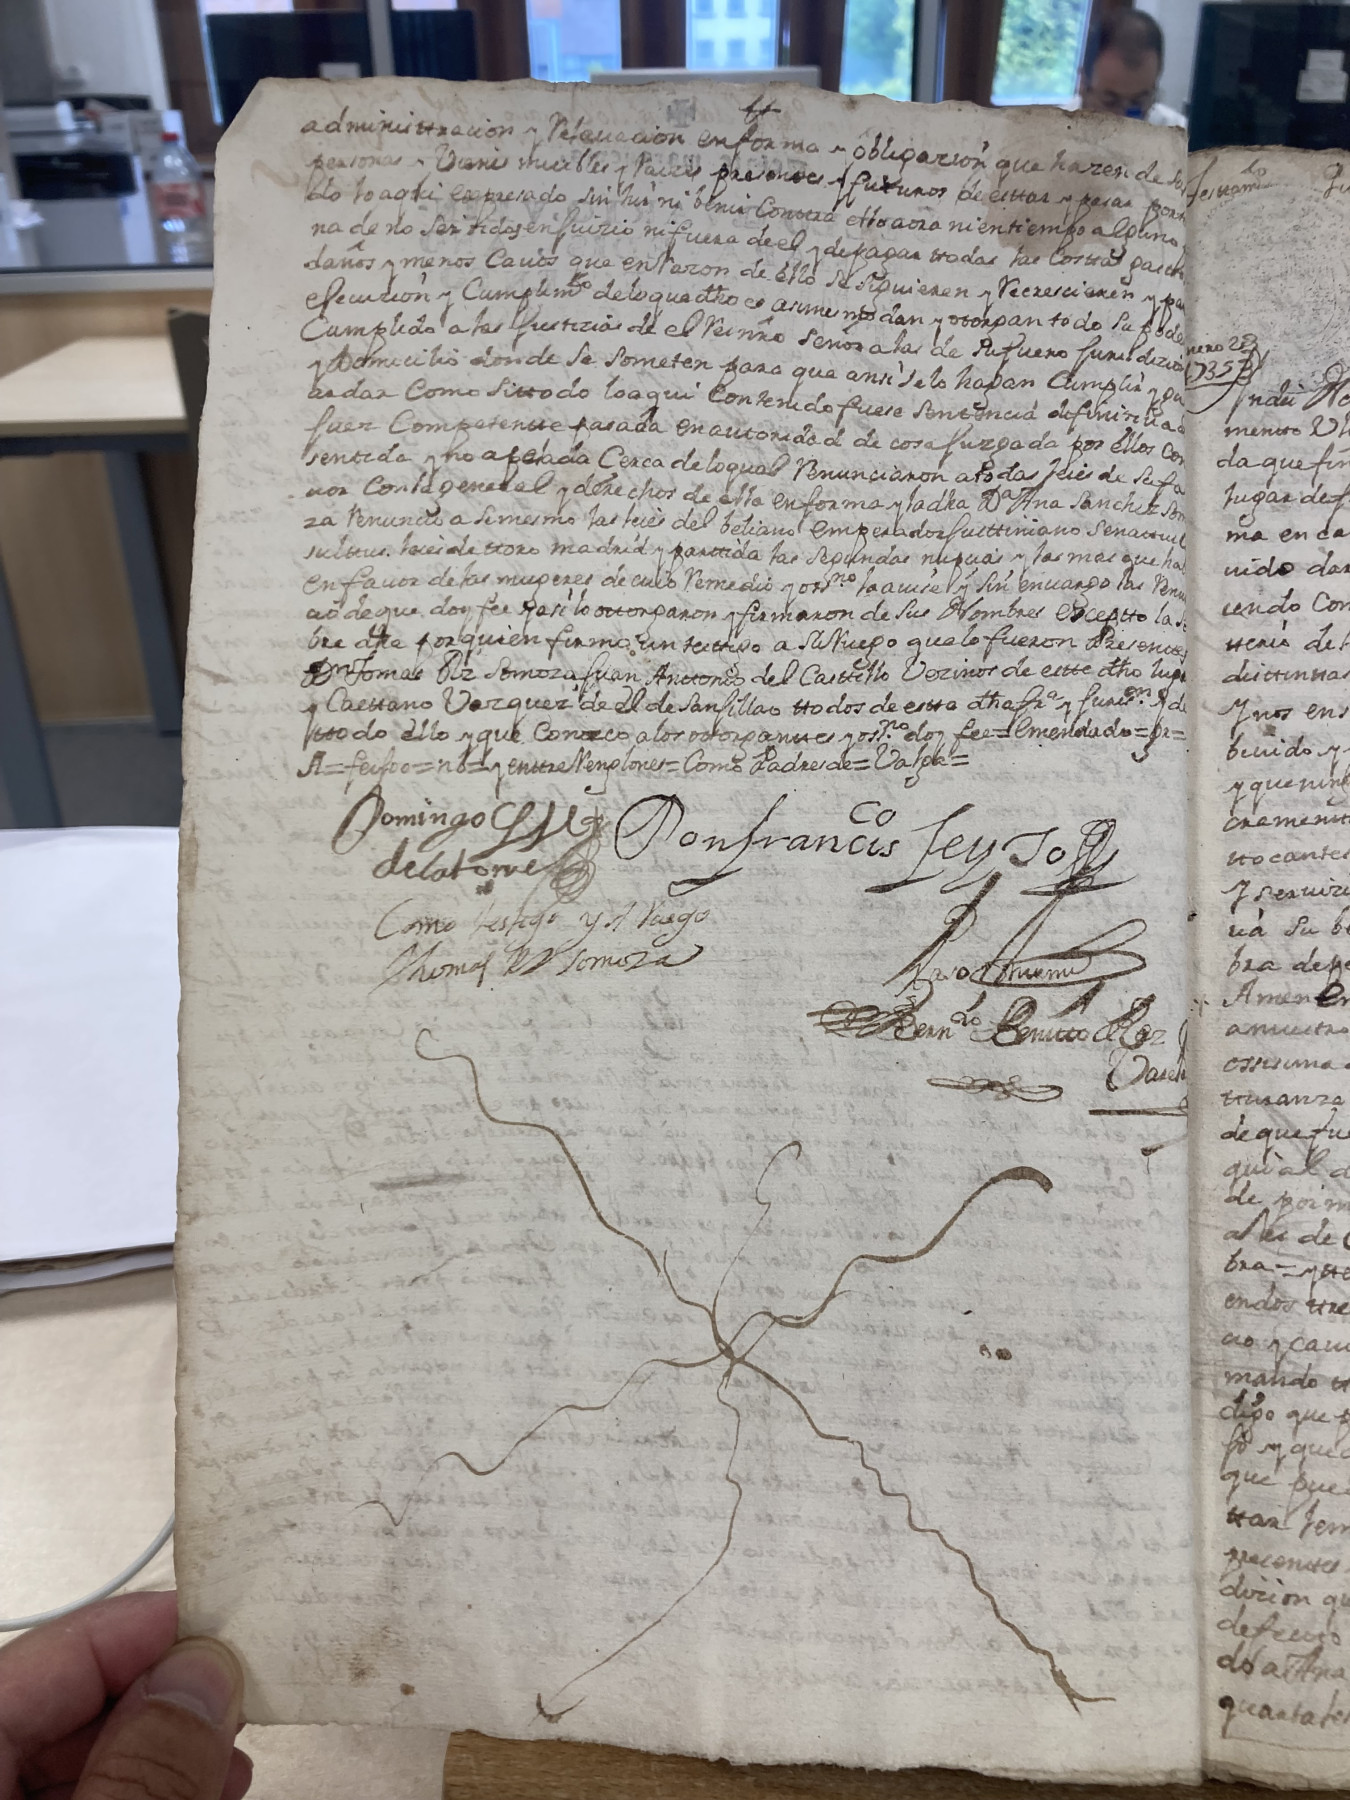 administtracion y Relevacion en forma y obligazion que hazen de sus
personas y Vienes muebles y Raices presentes y futuros de esttar y pasar por to
do lo aqui expresado sin hir ni benir Contra ello aora ni en tiempo alguno
na de no ser oidos en juizio ni fuera de el y de pagar ttodas las Costtas gastos
daños y menos Cavos que en Razon de ello se siguieren y Recrescieren y para
ejecucion y Cumplimto de lo que dho es asimesmo dan y otorgan todo su poder
Cumplido a las Justizias de el Rei nro señor a las de su fuero Jurisdizion
y Domicilio donde se someten para que ansi se lo hagan Cumplir y gu
ardar Como si ttodo lo aqui Contenido fuese sentencia difinitiva de
Juez Competentte pasada en autoridad de cosa Juzgada por ellos con
sentida y no apelada Cerca de lo qual Renunciaron a todas leies de su fa
vor Con la general y derechos de ella en forma y la dha Da Ana Sanchez Somo
za Renuncio asimesmo las leies del beliano emperador Justtiniano senattus
sulttus leies de ttoro madrid y parttida las segundas nupcias y las mas que ha
en favor de las mugeres de cuio Remedio yo ssno la avise y sin envargo las Renun
cio de que doy fee y asi lo ottorgaron y firmaron de sus Nombres escepto la so
bre dha por quien firmo un testigo a su Ruego que lo fueron Presentes
Dn Tomas Rz Somoza Juan Anttonio del Casttillo Vezinos de este dho lugar
y Caettano Vazquez de el de Sanfillao ttodos de estta dha fra y Jurisn y de
ttodo ello y que Conozco a los otorgantes yo ssno doy fee = Emendado = pr =
A = feijoo = no = y entre Renglones = Como Padres de = Valga =
Domingo
de la torre
Don francco feyJo
Como testigo y A Ruego
Thomas Rz Somoza
Paso Antte mi
Bernrdo Benitto Rez
Varela
testamto
enero 28
1735
mento
da que fin
lugar de
ma en ca
vido dar
iendo Con
tterio de
disttinttas
y nos en
bevido y
y que
crament
y servizi
va su
bra de
Amen
a nuestro
de que fue
qui al d
bra = y
mando
digo que
que pue
ttar
presentes
do a Ana
quarta